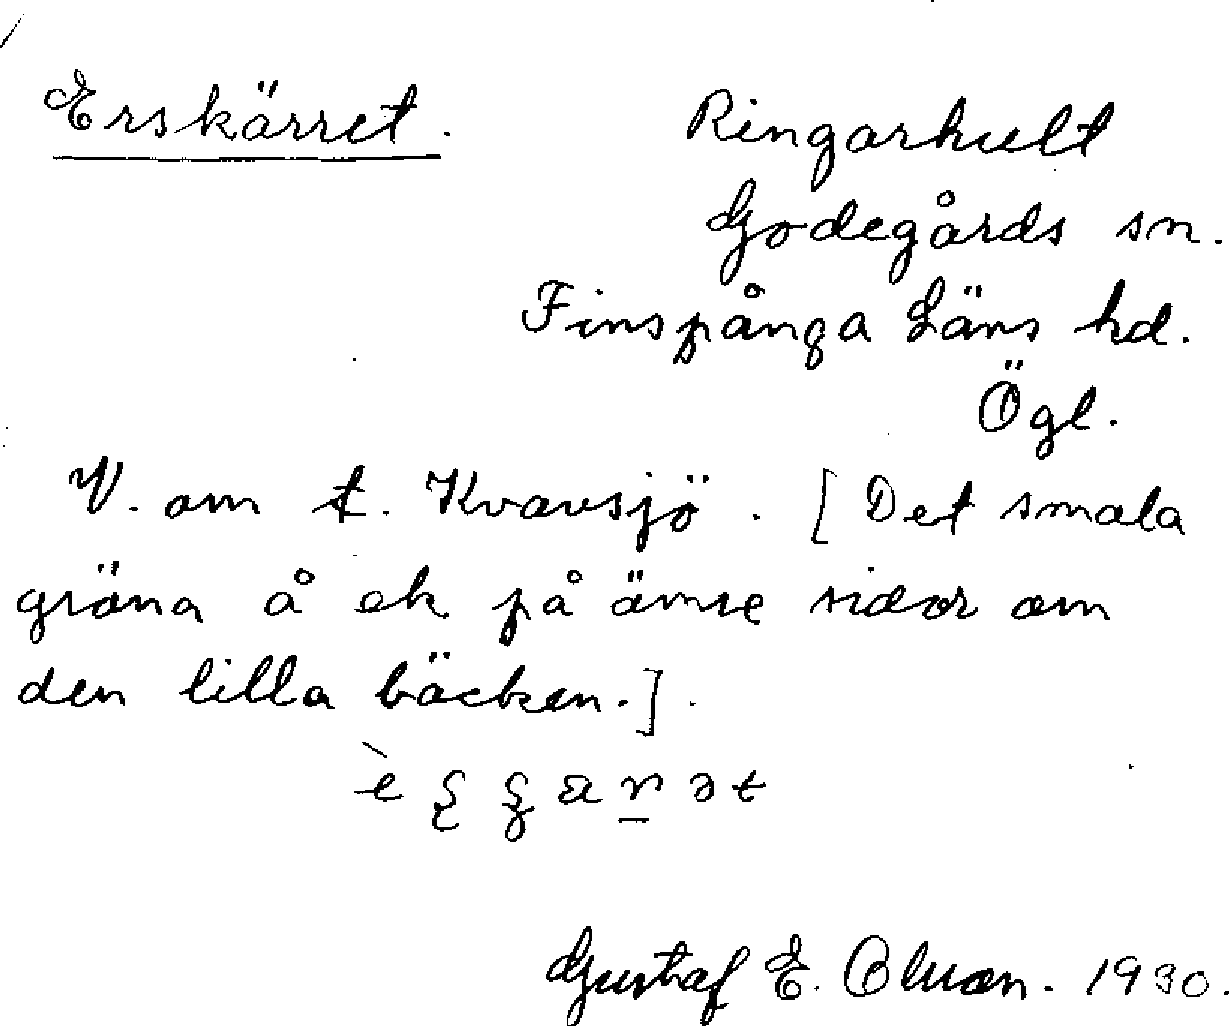 Erskärret.
Ringarhult
Godegårds sn.
Finspånga Läns hd.
Ögl.
V. om t. Kvavsjö. [Det smala
gröna å ek på ömse sidor om
den lilla bäcken.].
Gustaf E. Olson. 1930.